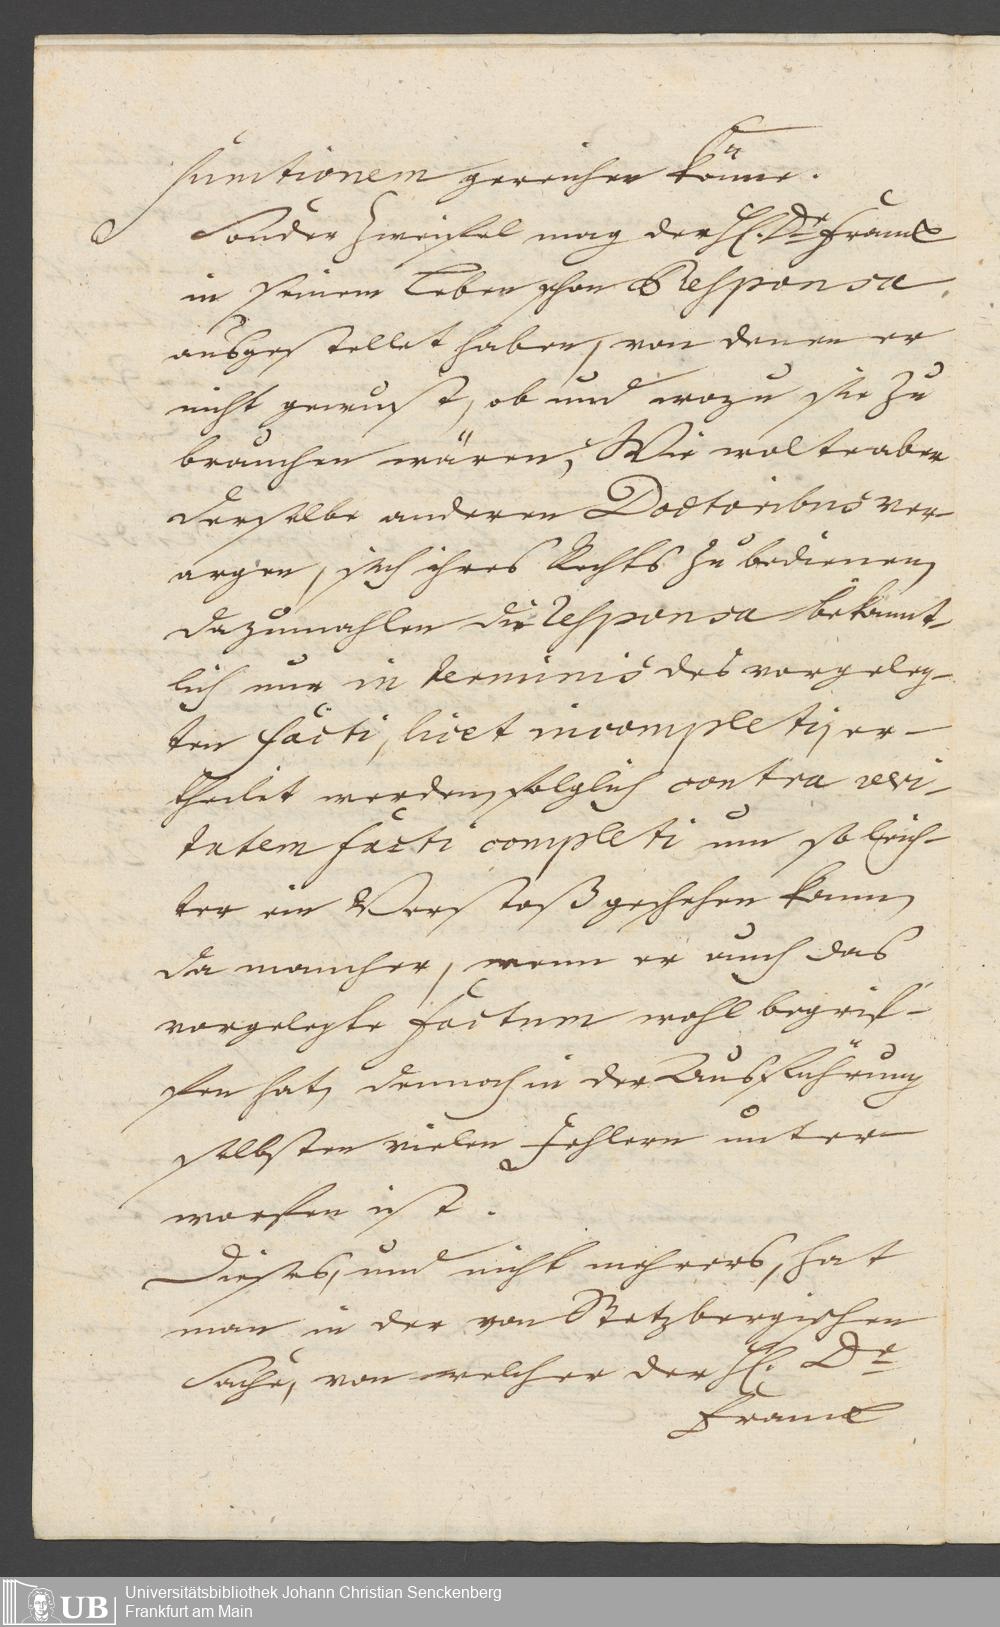 sumtionem gereichen könne.
Sonder Zweifel mag der H. Dr. Franck
in seinem Leben schon Responsa
ausgestellet haben, von denen er
nicht gewust, ob und wozu sie zu
brauchen wären, Wie wolte aber
derselbe anderen Doctoribus ver-
argen, sich ihres Rechts zu bedienen,
dazumahlen die Responsa bekannt-
lich nur in terminis des vorgeleg-
ten facti, licet incompleti, er-
theilet werden, folglich contra veri-
tatem facti completi um so leich-
ter ein Verstoß geschehen kann,
da mancher, wenn er auch das
vorgelegte factum wohl begrif-
fen hat, dennoch in der Ausführung
selbsten vielen Fehlern unter
worfen ist.
Dieses, und nicht mehrers, hat
man in der von Stetzbergischen
Sache, von welcher der H. Dr
Franck
UB Universitätsbibliothek Johann Christian Senckenberg
Frankfurt am Main